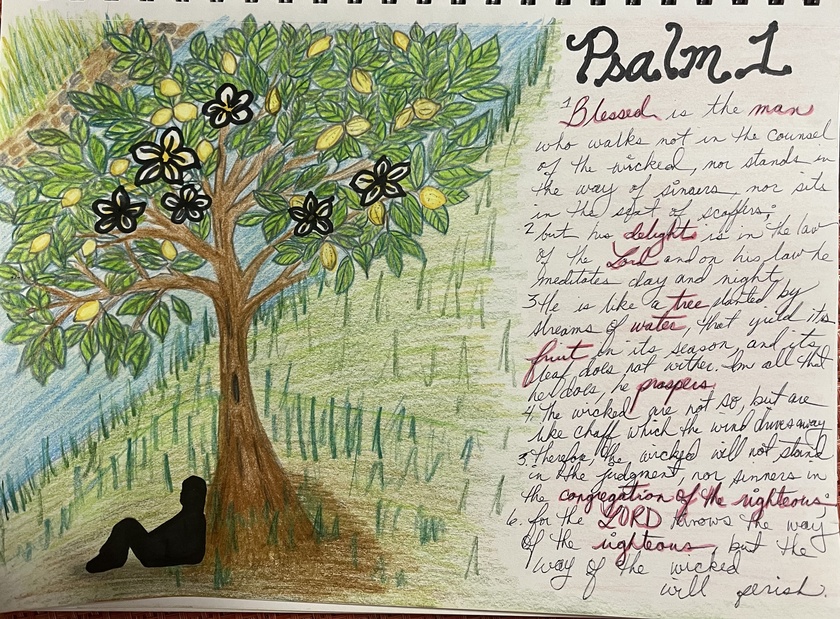 Psalm 1
1 Blessed is the man
who walks not in the counsel
of the wicked, nor stands in
the way of sinners, nor sits
in the seat of scoffers;
2 but his delight is in the law
of the Lord and on his law he
meditates day and night
3 He is like a tree planted by
streams of water, that yield its
fruit in its season, and its
leaf does not wither. In all that
he does, he prospers
4. The wicked are not so, but are
like chaff which the wind drives away
5. Therefore, the wicked will not stand
in the judgment, nor sinners in
the congregation of the righteous;
6. for the LORD knows the way
of the righteous, but the
way of the wicked
will perish.